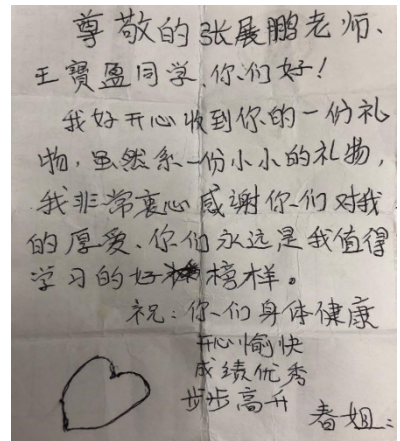 尊敬的张展鹏老师、
王寳盈同学、你们好!
我好开心收到你的一份礼
物,虽然系一份小小的礼物,
我非常衷心感谢你们对我
的厚爱、你们永远是我值得
学习的好榜样。
祝:你们身体健康
开心愉快
成绩优秀
步步高升
春姐